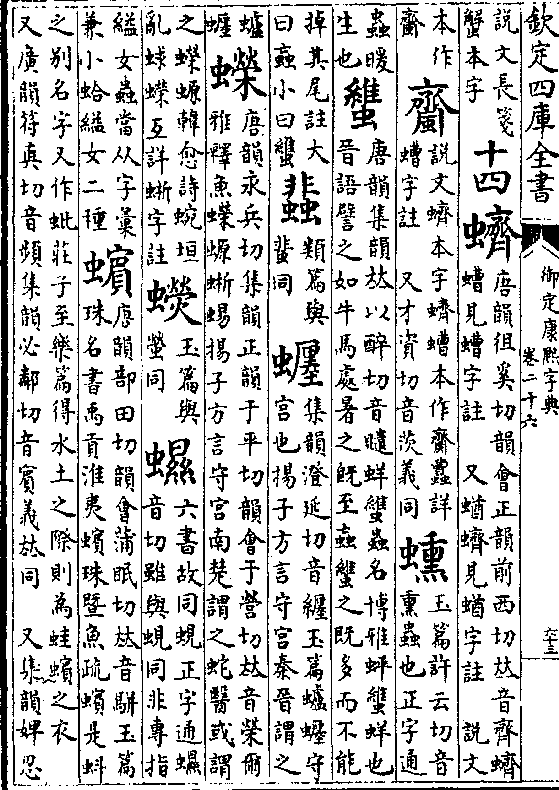 欽定四庫全書
御定康熙字典
卷二十六
六十三
説文長箋
蟹本字
十四
蠐
唐韻徂奚切韻會正韻前西切𠀤音齊蠐
螬見螬字註　又蝤蠐見蝤字註　説文
本作
説文蠐本字蠐螬本作詳
螬字註　又才資切音茨義同
玉篇許云切音
熏蟲也正字通
蟲暖
生也
䗽
唐韻集韻𠀤以醉切音蛘䗽蟲名博雅蛘䗽蛘也
晉語譬之如牛馬處暑之既至䖟䗽之既多而不能
掉其尾註大
曰䖟小曰䗽
類篇與
蜚同
集韻澄延切音纏玉篇蠦守
宮也揚子方言守宮秦晉謂之
蠦
蠑
唐韻永兵切集韻正韻于平切韻會于營切𠀤音榮爾
雅釋魚蠑螈蜥蜴揚子方言守宮南楚謂之蛇醫或謂
之蠑螈韓愈詩蜿垣
亂蛷蠑互詳蜥字註
玉篇與
螢同
六書故同蜆正字通
音切雖與蜆同非專指
縊女蟲當从字彙
兼小蛤縊女二種
蠙
唐韻部田切韻會蒲眠切𠀤音騈玉篇
珠名書禹貢淮夷蠙珠暨魚疏蠙是蚌
之别名字又作蚍莊子至樂篇得水土之際則為蛙蠙之衣
又廣韻符真切音頻集韻必鄰切音賓義𠀤同　又集韻婢忍